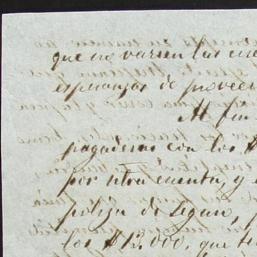 que no varien las
esperanzas de proveer
Al fin
pagaderas con los $
por otra cuenta, y
poliza de seguro,
los $15.000, que